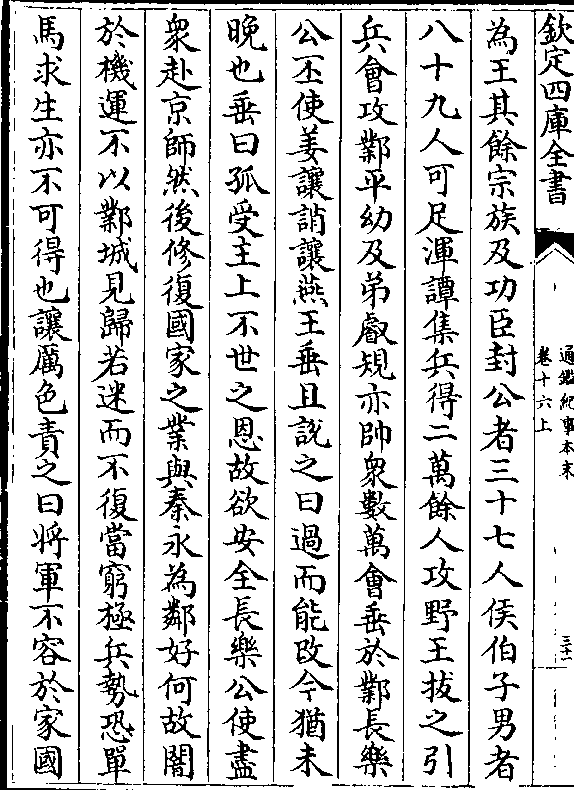 欽定四庫全書
通鑑紀事本末
卷十六上
三十一
為王其餘宗族及功臣封公者三十七人侯伯子男者
八十九人可足渾譚集兵得二萬餘人攻野王拔之引
兵會攻鄴平幼及弟叡規亦帥衆數萬會垂於鄴長樂
公丕使姜讓誚讓燕王垂且說之曰過而能改今猶未
晚也垂曰孤受主上不世之恩故欲安全長樂公使盡
衆赴京師然後修復國家之業與秦永為鄰好何故闇
於機運不以鄴城見歸若迷而不復當窮極兵勢恐單
馬求生亦不可得也讓厲色責之曰將軍不容於家國